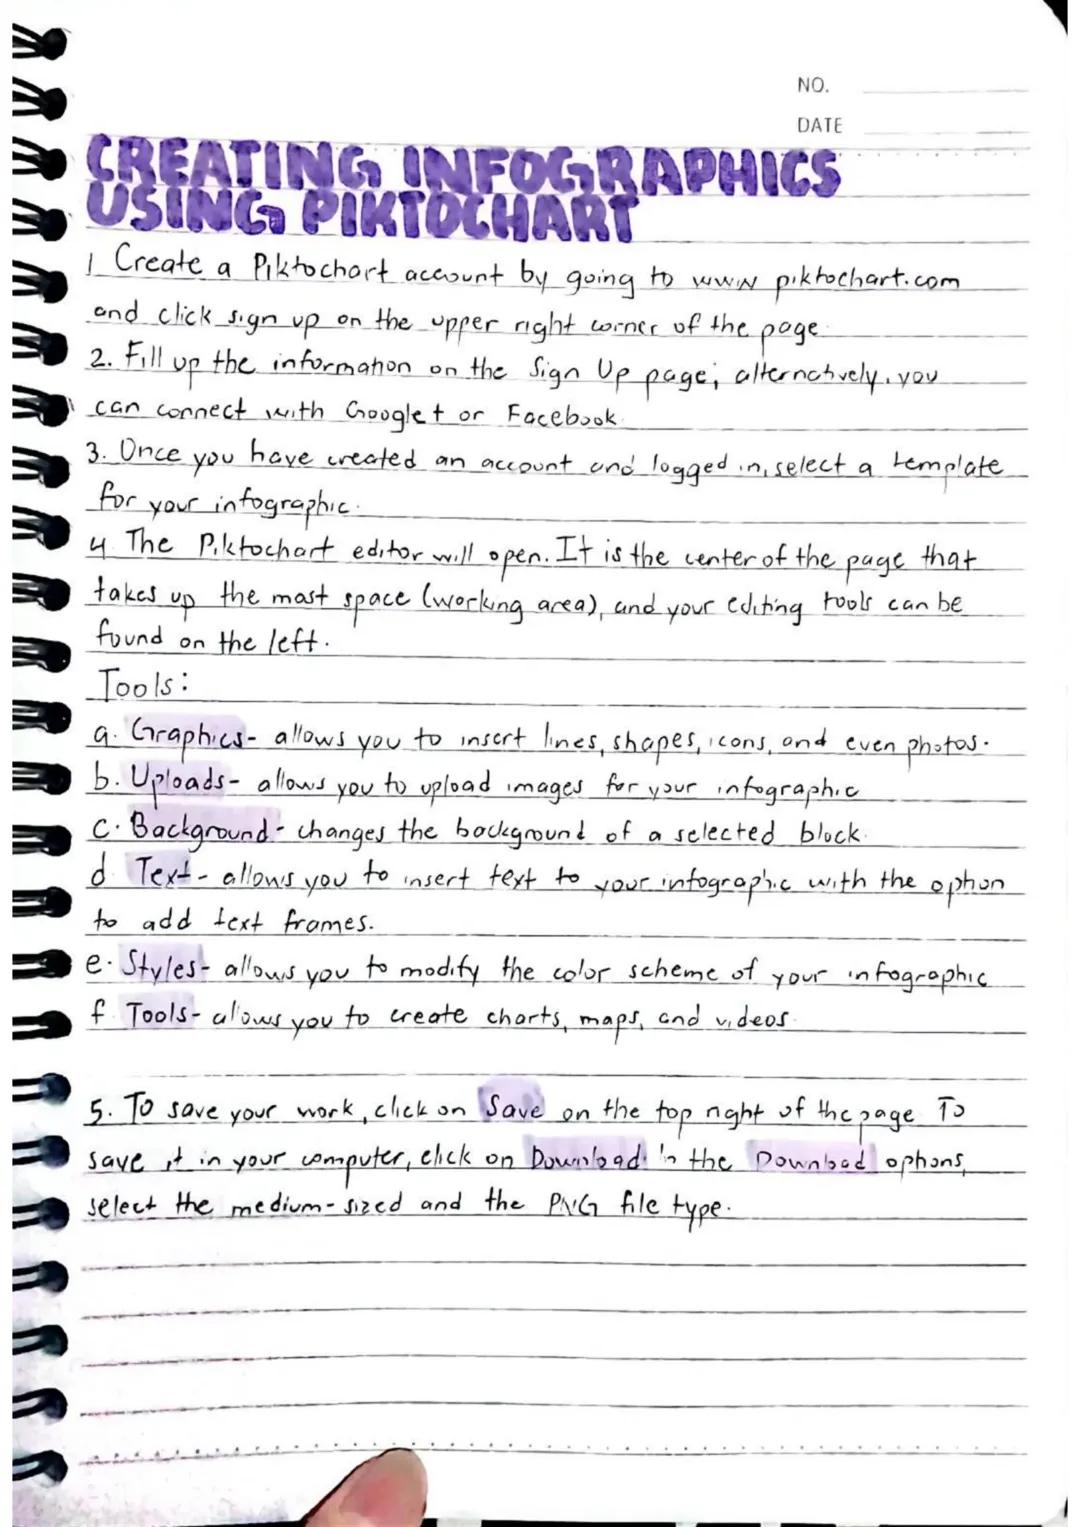 NO.
DATE
CREATING INFOGRAPHICS
USING PIKTOCHART
1 Create a Piktochart account by going to www piktochart.com
and click sign up on the upper right corner of the page.
2. Fill up the information on the Sign Up page; alternatively, you
can connect with Google+ or Facebook.
3. Once you have created an account and logged in, select a template
for your infographic.
4. The Piktochart editor will open. It is the center of the page that
takes up the most space (working area), and your editing tools can be
found on the left.
Tools:
a. Graphics- allows you to insert lines, shapes, icons, and even photos.
b. Uploads- allows you to upload images for your infographic
c. Background- changes the background of a selected block.
d. Text- allows you to insert text to your infographic with the option
to add text frames.
e. Styles- allows you to modify the color scheme of your infographic
f. Tools- allows you to create charts, maps, and videos.
5. To save your work, click on Save on the top right of the page To
save it in your computer, click on Download. In the Download options,
select the medium-sized and the PNG file type.